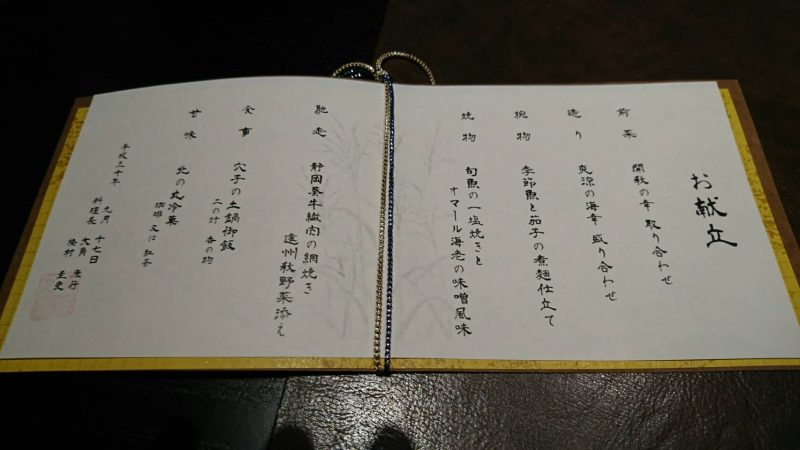 お献立
前菜
開秋の幸 取り合わせ
造り
爽涼の海幸 盛り合わせ
椀物
季節魚と茄子の煮麺仕立て
焼物
旬魚の一塩焼きと
オマール海老の味噌風味
馳走
静岡葵牛繊肉の網焼き
遠州秋野菜添え
食事
穴子の土鍋御飯
二の汁 香の物
甘味
北の丸冷菓
珈琲 又は 紅茶
平成三十年
九月 十七日
料理長